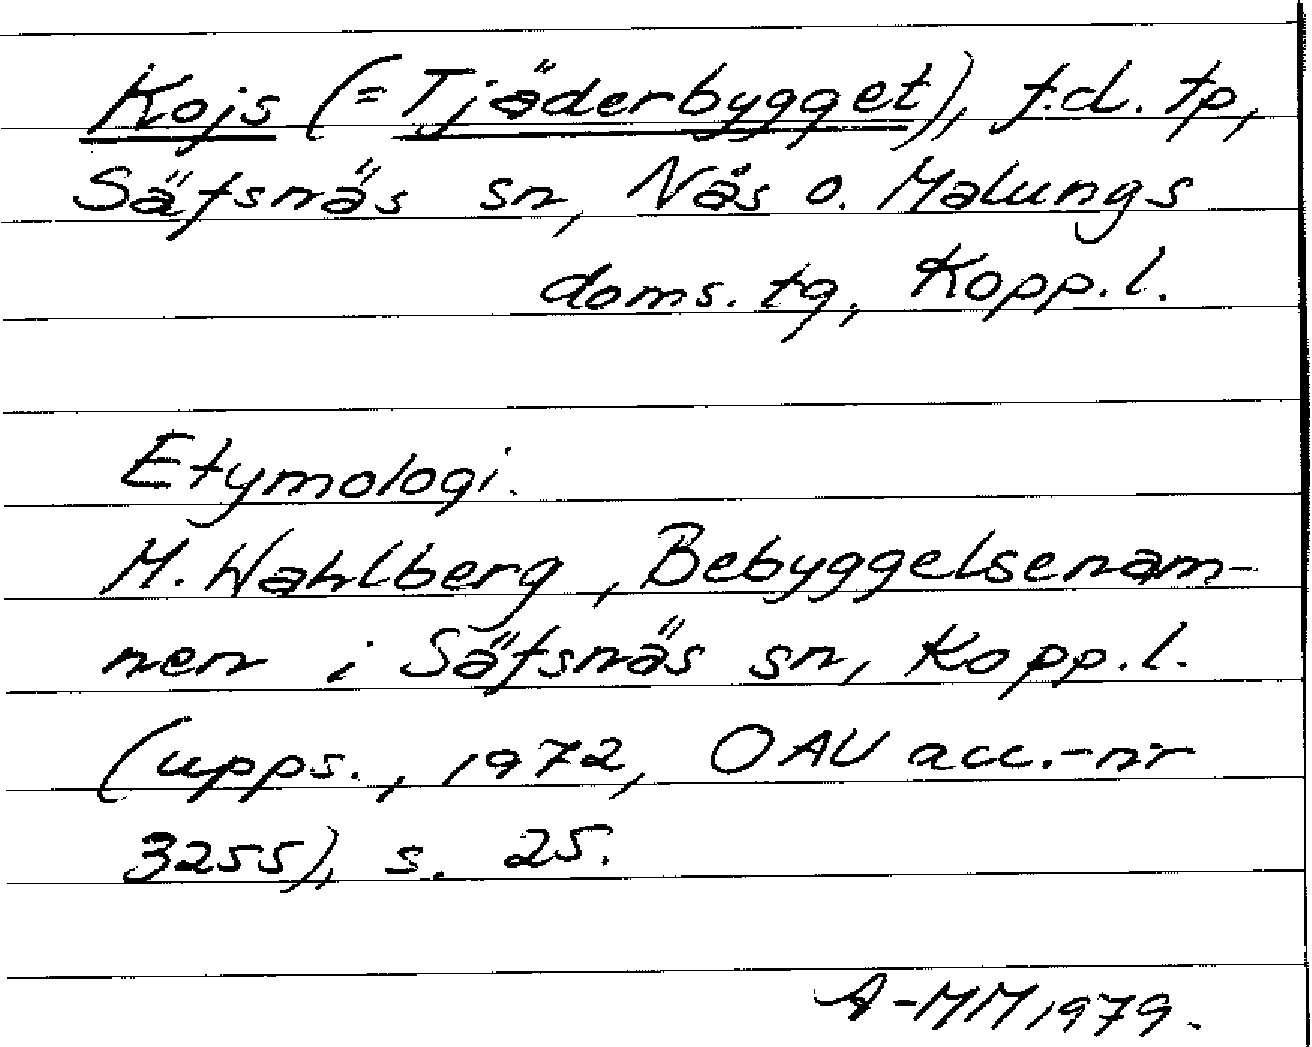 Kojs (= Tjäderbygget), f.d. tp,
Säfsnäs sn, Nås o. Malungs
doms. tg, Kopp.l.
Etymologi.
M. Wahlberg, Bebyggelsenam-
nen i Säfsnäs sn, Kopp.l.
(upps., 1972, OAU acc.-nr
3255), s. 25.
A-MM 1979.